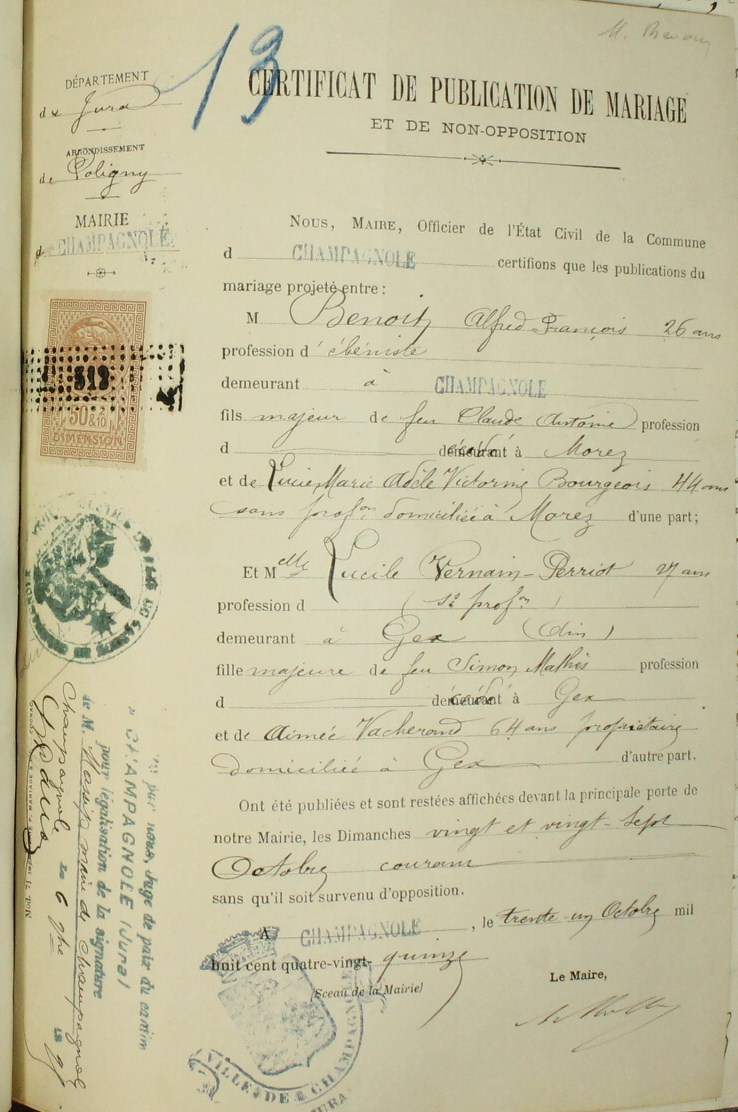 13
DÉPARTEMENT
de Jura
ARRONDISSEMENT
de Poligny
MAIRIE
d CHAMPAGNOLE
CERTIFICAT DE PUBLICATION DE MARIAGE
ET DE NON-OPPOSITION
Nous, Maire, Officier de l'État Civil de la Commune
d CHAMPAGNOLE certifions que les publications du
mariage projeté entre :
M Benoit Alfred François 26 ans
profession d'ébéniste
demeurant à CHAMPAGNOLE
fils majeur de feu Claude Antoine profession
d décédé à Morez
et de Lucie Marie Adèle Victorine Bourgeois 44 ans
sans profon domiciliée à Morez d'une part;
Et Melle Lucile Vernain-Perriot 27 ans
profession d (se profon)
demeurant à Gex (Ain)
fille majeure de feu Simon Mathis profession
d décédé à Gex
et de Aimée Vacherand 64 ans propriétaire
domiciliée à Gex d'autre part.
Ont été publiées et sont restées affichées devant la principale porte de
notre Mairie, les Dimanches vingt et vingt-sept
Octobre courant
sans qu'il soit survenu d'opposition.
A CHAMPAGNOLE, le trente-un Octobre mil
huit cent quatre-vingt-quinze
(Sceau de la Mairie)
Le Maire,
VILLE DE CHAMPAGNOLE
JURA
513
50c & 2/10
DIMENSION
Vu par nous, Juge de paix du canton
de CHAMPAGNOLE (Jura)
pour légalisation de la signature
de M. maire de Champagnole
Champagnole 6 9bre 95